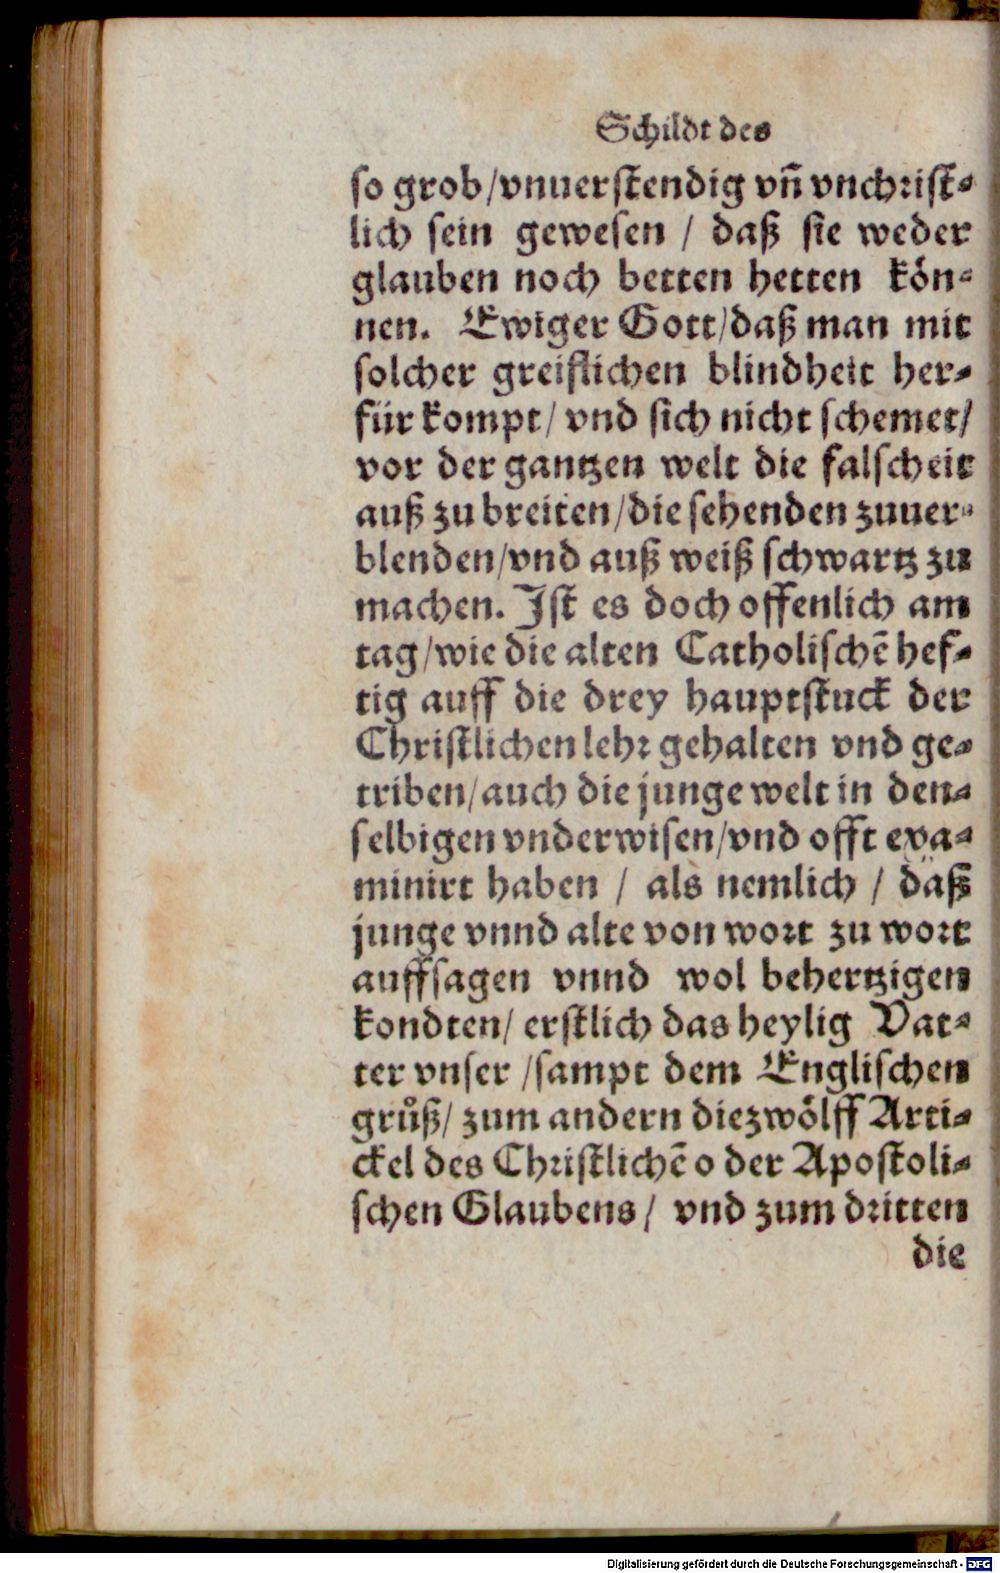 Schildt des
so grob/vnuerstendig vñ vnchrist-
lich sein gewesen / daß sie weder
glauben noch betten hetten kön-
nen. Ewiger Gott/daß man mit
solcher greiflichen blindheit her-
für kompt/ vnd sich nicht schemet/
vor der gantzen welt die falscheit
auß zu breiten/die sehenden zuuer-
blenden/vnd auß weiß schwartz zu
machen. Ist es doch offenlich am
tag/wie die alten Catholischē hef-
tig auff die drey hauptstuck der
Christlichen lehr gehalten vnd ge-
triben/auch die junge welt in den-
selbigen vnderwisen/vnd offt exa-
minirt haben / als nemlich / daß
junge vnnd alte von wort zu wort
auffsagen vnnd wol behertzigen
kondten/ erstlich das heylig Vat-
ter vnser /sampt dem Englischen
grůß/ zum andern diezwölff Arti-
ckel des Christlichē o der Apostoli-
schen Glaubens/ vnd zum dritten
die
Digitalisierung gefördert durch die Deutsche Forschungsgemeinschaft - DFG